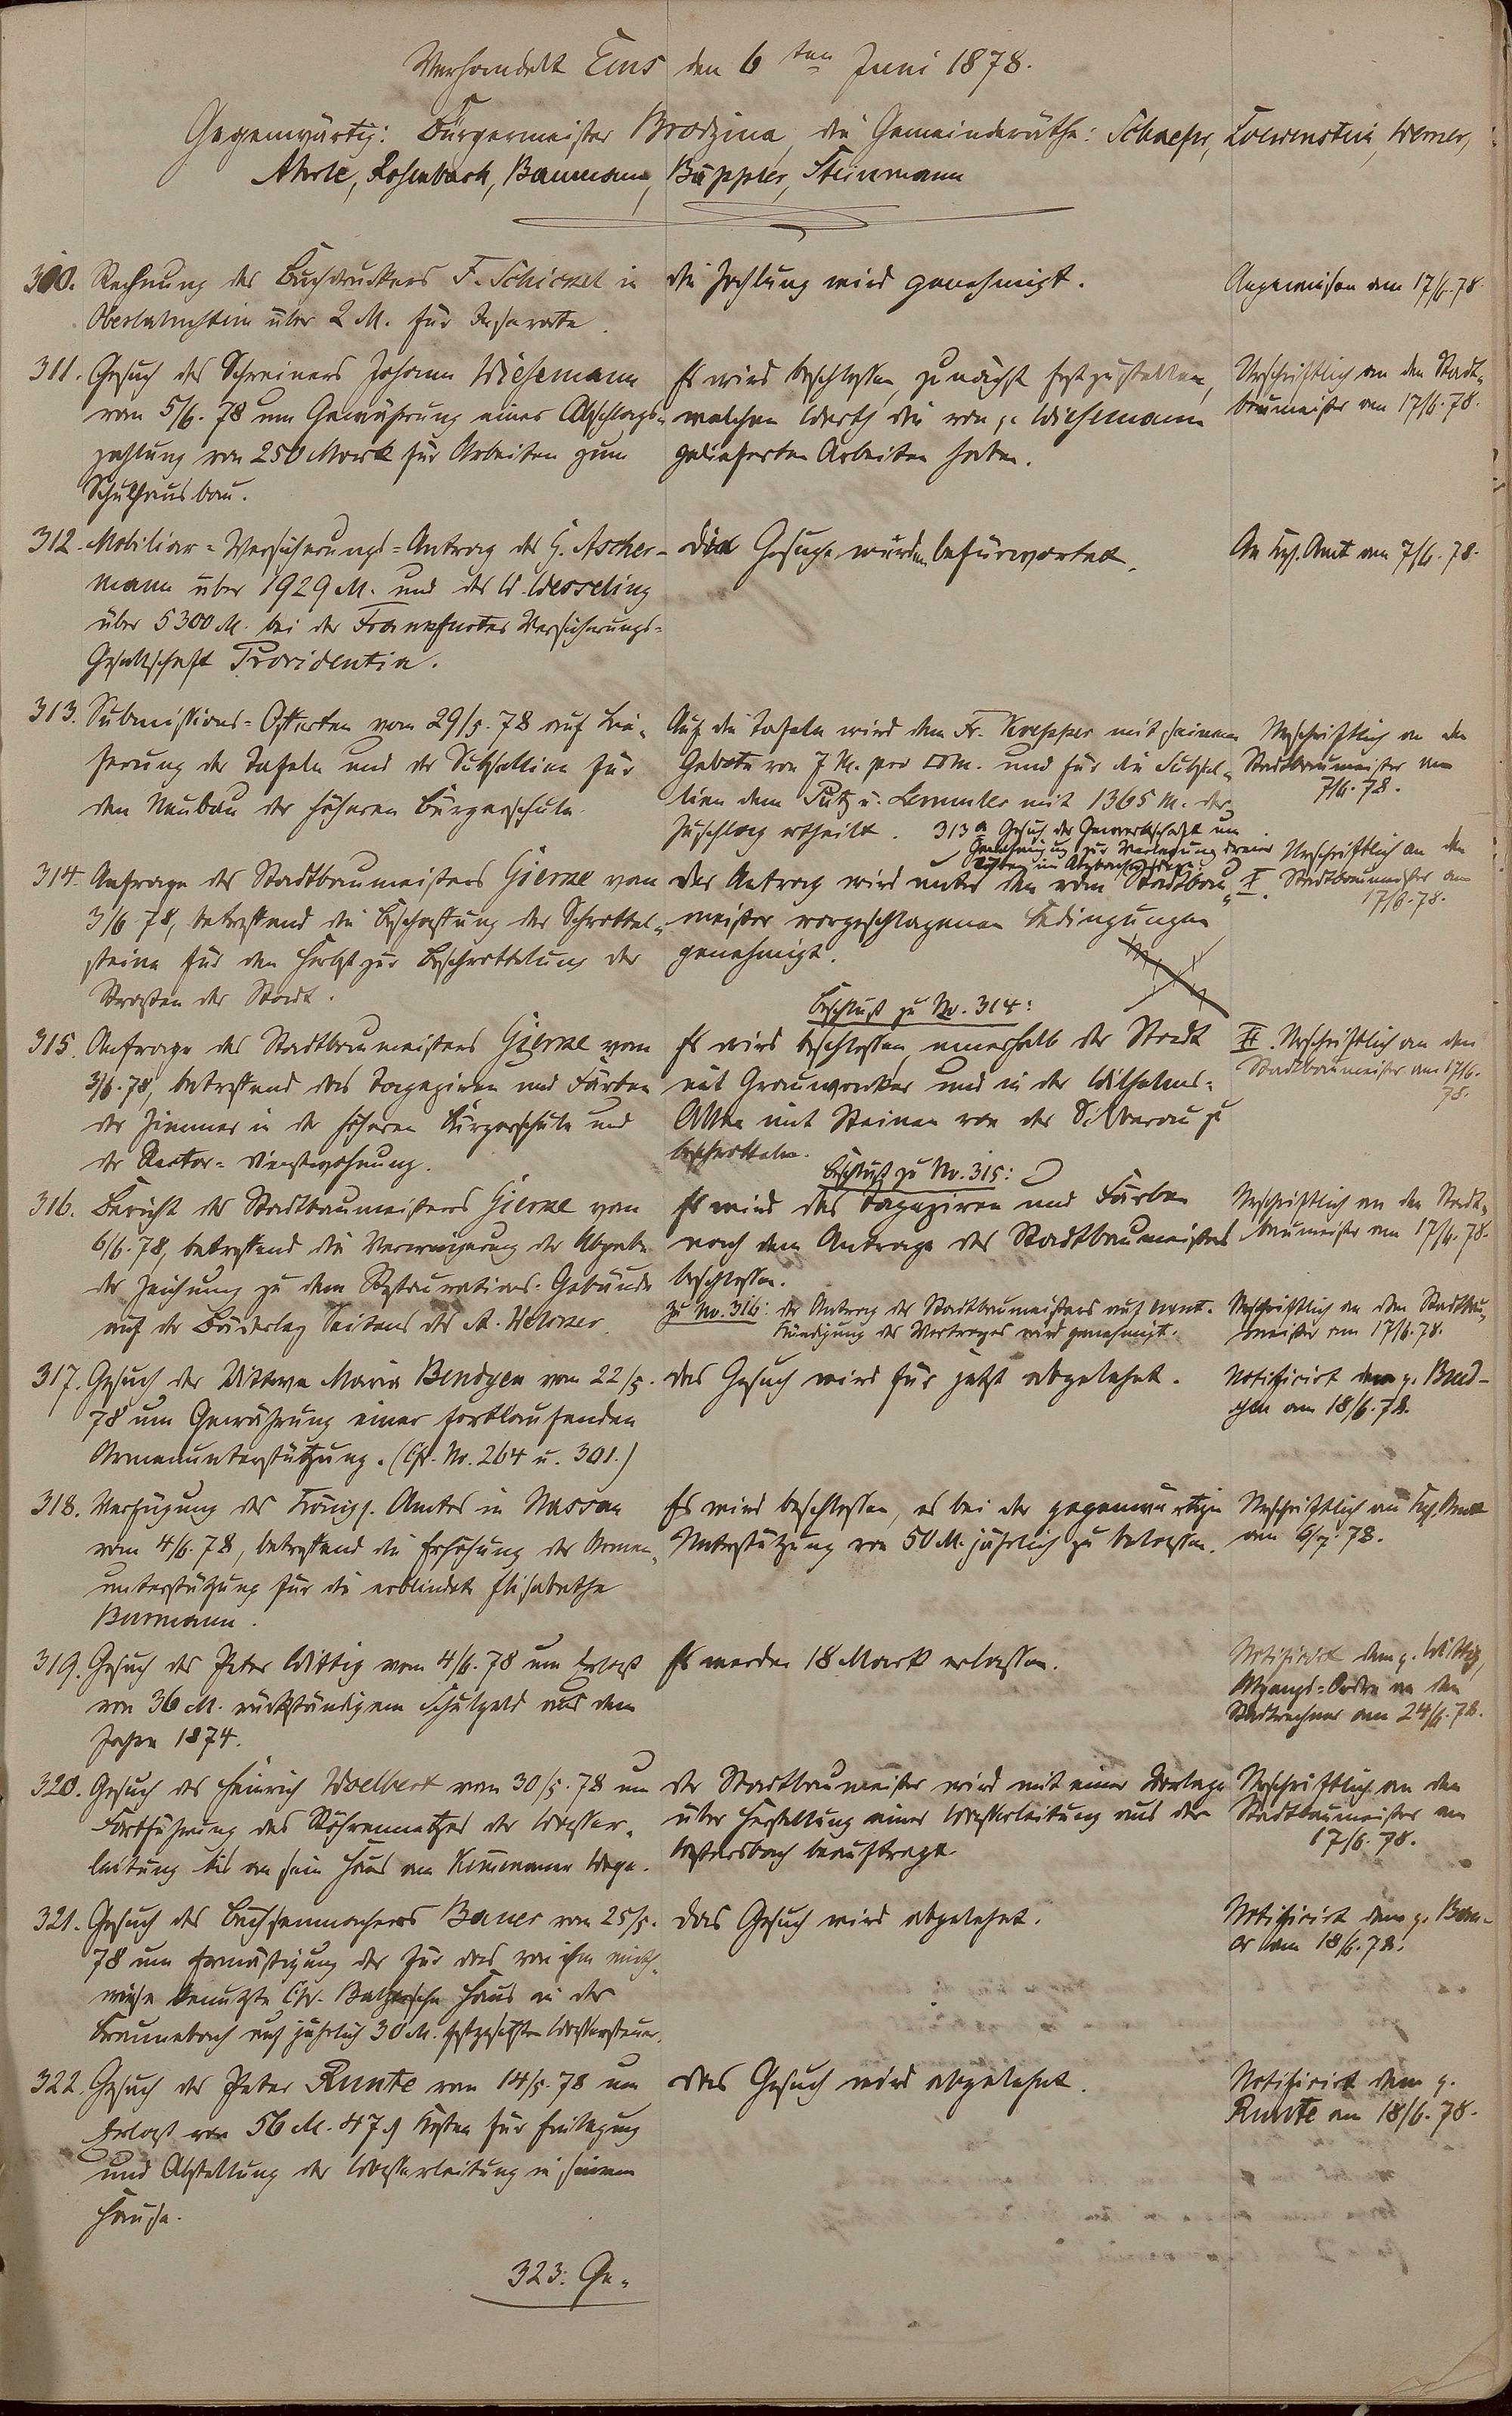 Verhandelt Ems den 6ten Juni 1878.
Gegenwärtig: Bürgermeister Brodzina, die Gemeinderäthe: Schaefer, Loewenstein, Werner,
Ahrle, Rosenbach, Baumann, Büppler, Steinmann
310. Rechnung des Buchdruckers F. Schickel in
Oberlahnstein über 2 M. für Inserate.
die Zahlung wird genehmigt.
Angewiesen am 17/6.78.
311. Gesuch des Schreiners Johann Wiesemann
vom 5/6.78 um Gewährung einer Abschlags-
zahlung von 250 Mark für Arbeiten zum
Schulhausbau.
Es wird beschlossen, zunächst festzustellen,
welchen Werth die von p. Wiesemann
gelieferten Arbeiten haben.
Urschriftlich an den Stadt-
baumeister am 17/6.78.
312. Mobiliar-Versicherungs-Antrag des G. Ascher-
mann über 1929 M. und des W. Wesseling
über 5300 M. bei der Frankfurter Versicherungs-
Gesellschaft Providentia.
Die Gesuche wurden befürwortet.
An Kgl. Amt am 7/6.78.
313. Submissions-Offerten vom 29/5.78 auf Lie-
ferung der Tafeln und der Subsellien für
den Neubau der höheren Bürgerschule.
Auf die Tafeln wird dem Fr. Koepper mit seinem
Gebote von 7 M. pro □m. und für die Subsel-
lien dem Putz u. Lemmler mit 1365 M. der
Zuschlag ertheilt. 313a Gesuch der Gewerkschaft um
Genehmigung zur Verlegung
Urschriftlich an den
Stadtbaumeister am
7/6.78.
314. Anfrage des Stadtbaumeisters Gierke vom
3/6.78, betreffend die Beschaffung der Schrottel-
steine für den Herbst zur Beschrottelung der
Strassen der Stadt.
Der Antrag wird unter den vom Stadtbau-
meister vorgeschlagenen Bedingungen
genehmigt.
I. Urschriftlich an den
Stadtbaumeister am
17/6.78.
Beschluß zu No. 314:
315. Anfrage des Stadtbaumeisters Gierke vom
3/6.78, betreffend das Tapeziren und Färben
der Zimmer in der höheren Bürgerschule und
der Rector-Dienstwohnung.
Es wird beschlossen, innerhalb der Stadt
mit Grauwacke und in der Wilhelms-
Allee mit Steinen von der Silberau zu
beschrotteln.
II. Urschriftlich an den
Stadtbaumeister am 17/6.
78.
Beschluß zu No. 315:
316. Bericht des Stadtbaumeisters Gierke vom
6/6.78, betreffend die Verweigerung der Abgabe
der Zeichnung zu dem Restaurations-Gebäude
auf der Bäderley Seitens des A.
Es wird das Tapeziren und Färben
nach dem Antrage des Stadtbaumeisters
beschlossen.
Zu No. 316: der Antrag des Stadtbaumeisters auf event.
Kündigung des Vertrages wird genehmigt.
Urschriftlich an den Stadt-
baumeister am 17/6.78.
Urschriftlich an den Stadtbau-
meister am 17/6.78.
317. Gesuch der Wittwe Maria Bendgen vom 22/5.
78 um Gewährung einer fortlaufenden
Armenunterstützung. (Cfr. No. 264 u. 301.)
das Gesuch wird für jetzt abgelehnt.
Notificirt dem p. Bend-
gen am 18/6.78.
318. Verfügung des Königl. Amtes in Nassau
vom 4/6.78, betreffend die Erhöhung der Armen-
unterstützung für die erblindete Elisabethe
Burmann.
Es wird beschlossen, es bei der gegenwärtigen
Unterstützung von 50 M. jährlich zu belassen.
Urschriftlich an Kgl. Amt
am 6/7.78.
319. Gesuch des Peter Wittig vom 4/6.78 um Erlaß
von 36 M. rückständigem Schulgeld aus dem
Jahre 1874.
Es werden 18 Mark erlassen.
Notificirt dem p. Wittig,
Abgangs-Ordre an den
Stadtrechner am 24/6.78.
320. Gesuch des Heinrich Woelbert vom 30/5.78 um
Fortführung des Röhrennetzes der Wasser-
leitung bis an sein Haus am Kemmenauer Wege.
der Stadtbaumeister wird mit einer Vorlage
über Herstellung einer Wasserleitung aus der
beauftragt.
Urschriftlich an den
Stadtbaumeister am
17/6.78.
321. Gesuch des Büchsenmachers Bauer vom 25/5.
78 um Ermäßigung der für das von ihm mieth-
weise benutzte Chr. Balzersche Haus in der
Braunebach auf jährlich 30 M. festgesetzten Wassersteuer.
das Gesuch wird abgelehnt.
Notificirt dem p. Bau-
er am 18/6.78.
322. Gesuch des Peter Runte vom 14/5.78 um
Erlaß von 56 M. 47 ₰ Kosten für Freilegung
und Abstellung der Wasserleitung in seinem
Hause.
das Gesuch wird abgelehnt.
Notificirt dem p.
Runte am 18/6.78.
323. Ge-